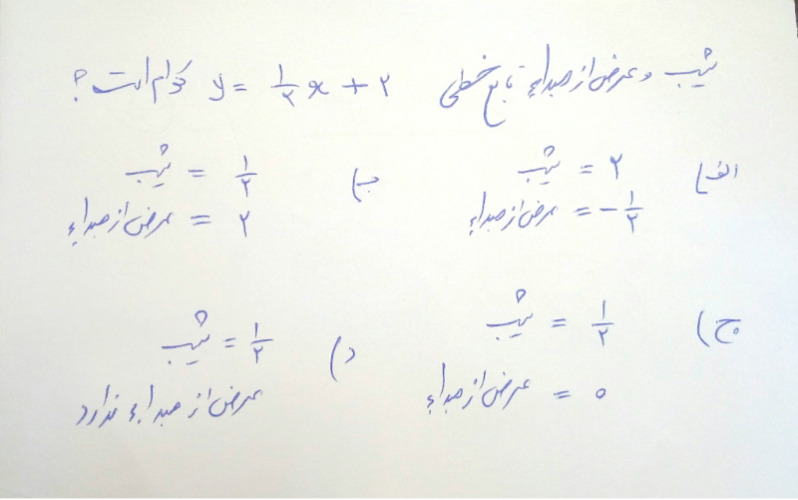 شیب و عرض از مبداء تابع خطی y = ۱/۲ x + ۲ کدام است؟
الف) شیب = ۲
عرض از مبداء = -۱/۲
ب) شیب = ۱/۲
عرض از مبداء = ۲
ج) شیب = ۱/۲
عرض از مبداء = ۰
د) شیب = ۱/۲
عرض از مبداء ندارد